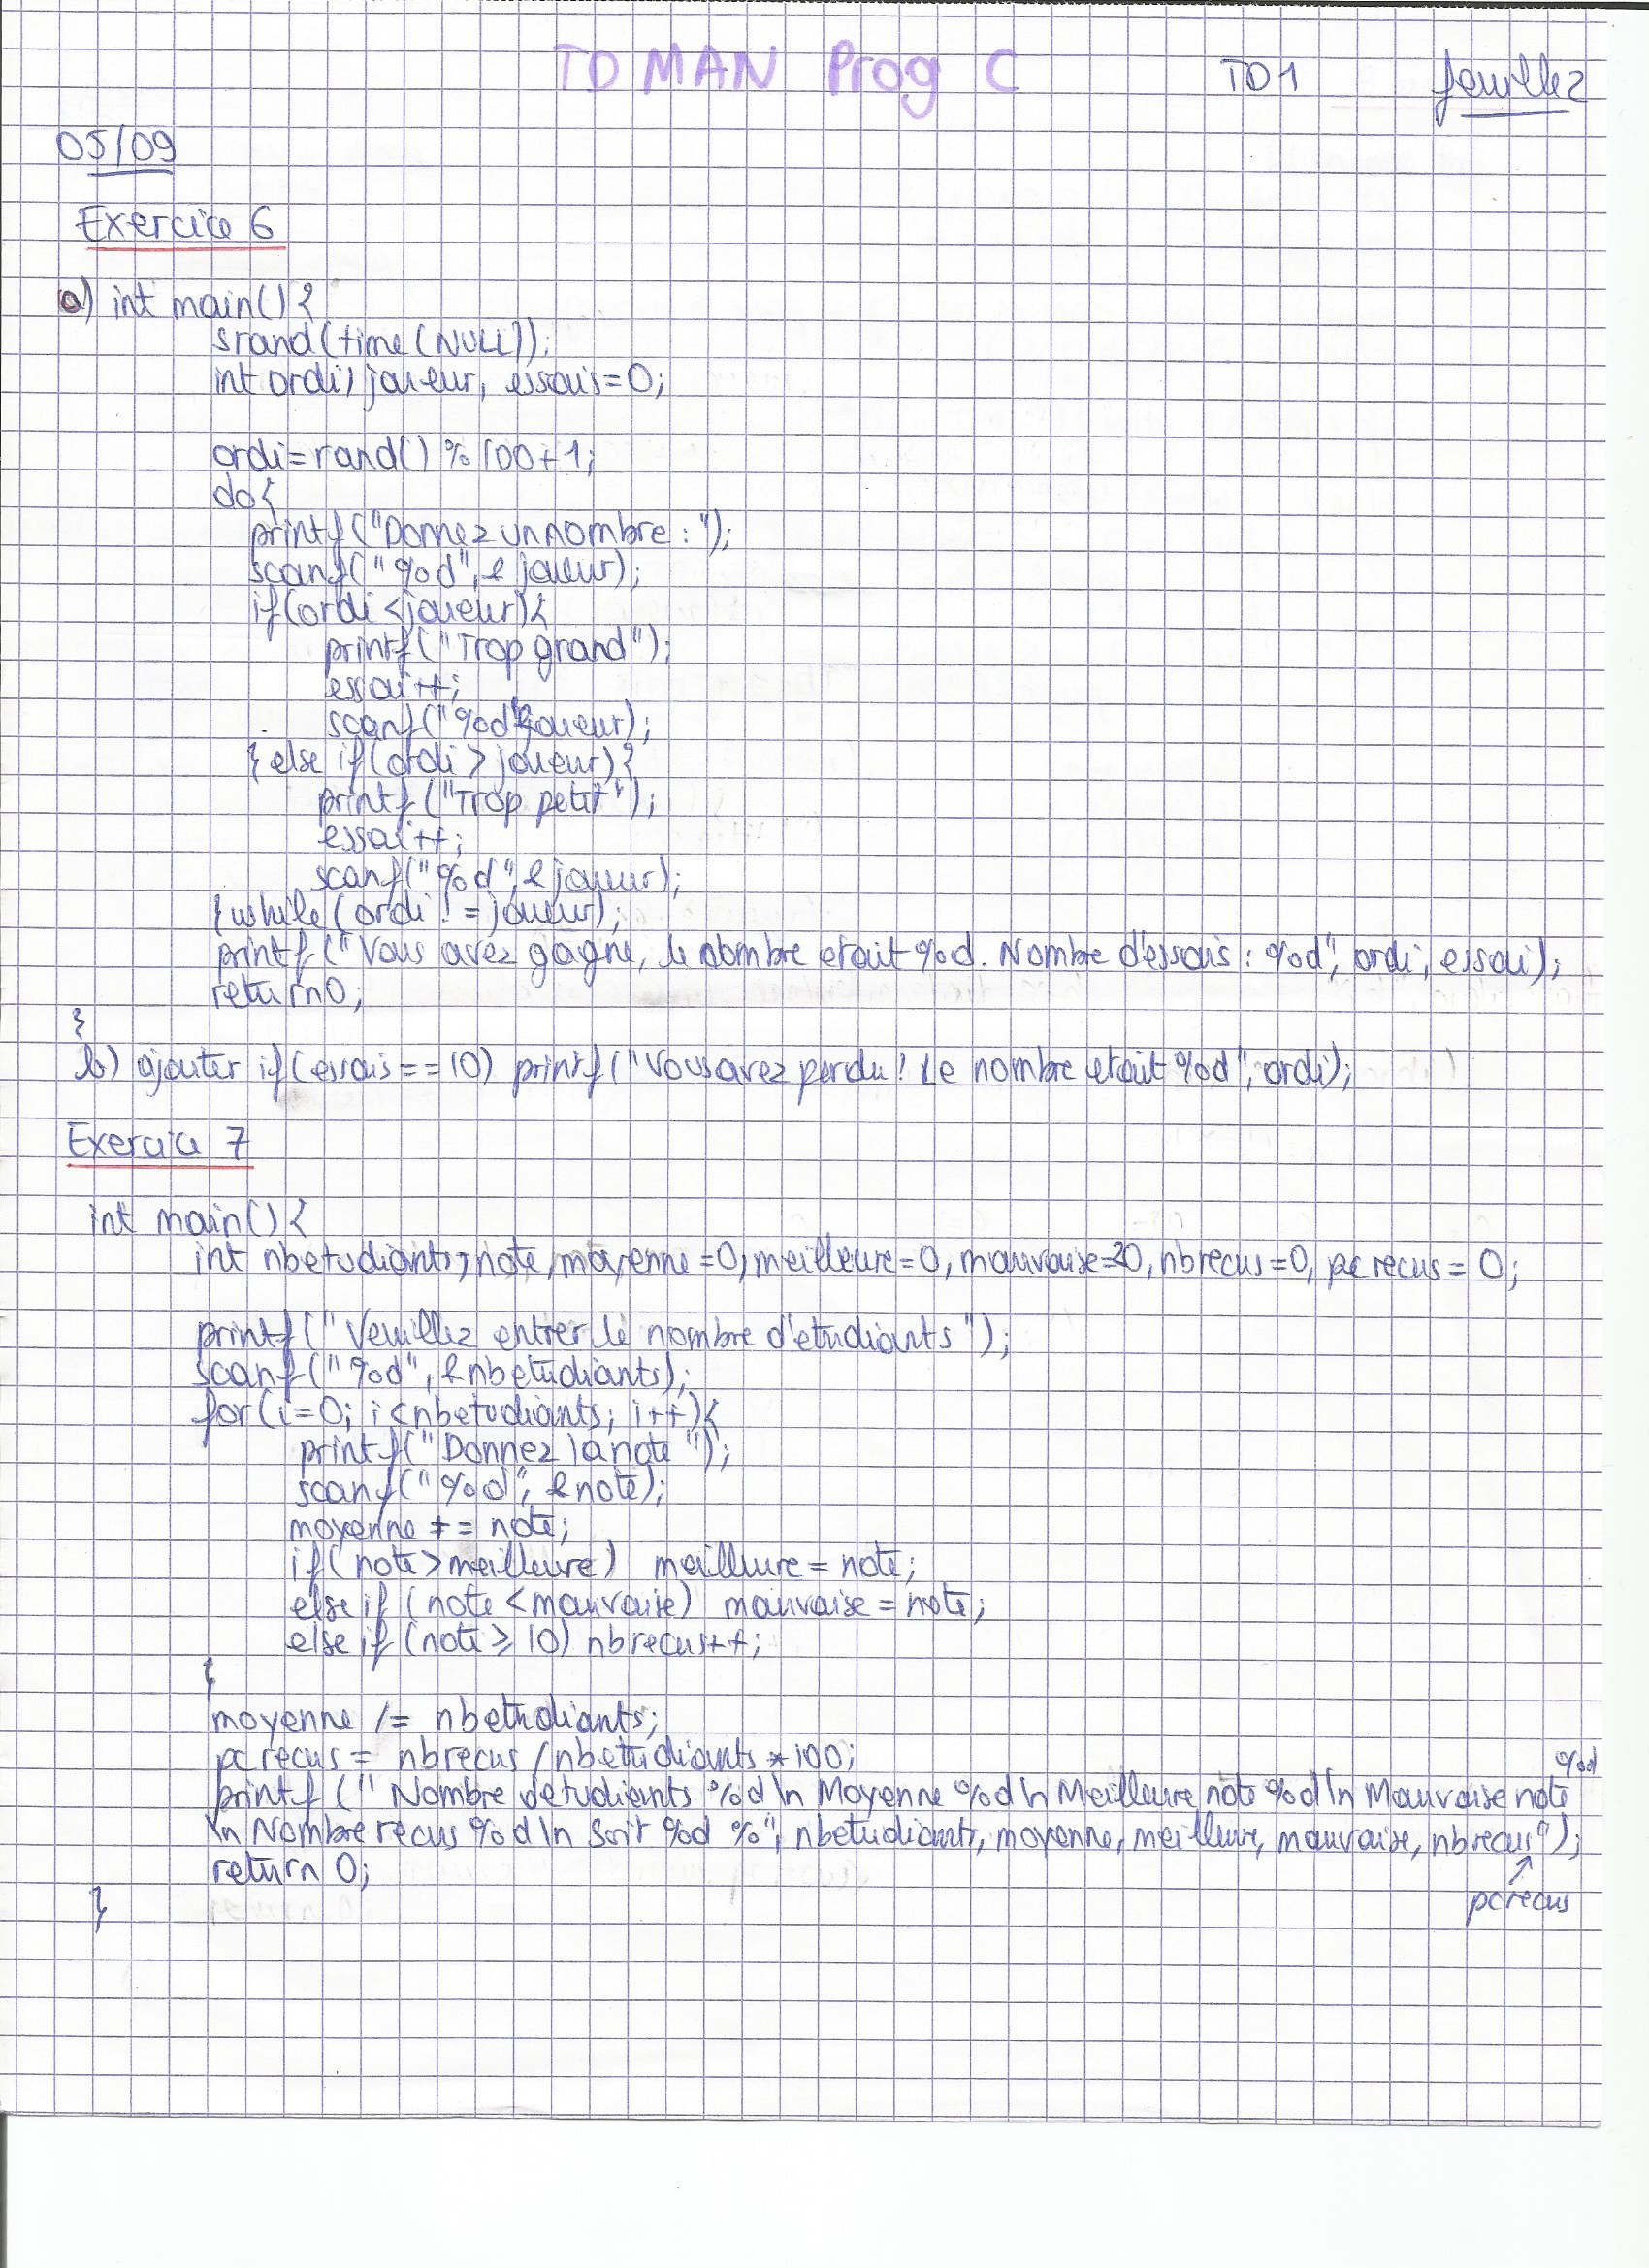 TD MAN Prog C TD1 feuille 2
05/09
Exercice 6
a) int main(){
srand(time(NULL));
int ordi, joueur, essais=0;
ordi=rand()%100+1;
do{
printf("Donnez un nombre : ");
scanf("%d", &joueur);
if(ordi<joueur){
printf("Trop grand");
essai++;
scanf("%d"&joueur);
}else if(ordi > joueur){
printf("Trop petit");
essai++;
scanf("%d", &joueur);
}while(ordi != joueur);
printf("Vous avez gagne, le nombre etait %d. Nombre d'essais : %d", ordi, essai);
return 0;
}
b) ajouter if(essais==10) printf("Vous avez perdu! Le nombre etait %d", ordi);
Exercice 7
int main(){
int nbetudiants, note, moyenne=0, meilleure=0, mauvaise=20, nbrecus=0, pcrecus=0;
printf("Veuillez entrer le nombre d'etudiants");
scanf("%d", &nbetudiants);
for(i=0; i<nbetudiants; i++){
printf("Donnez la note");
scanf("%d", &note);
moyenne += note;
if(note>meilleure) meilleure = note;
else if (note<mauvaise) mauvaise = note;
else if (note ≥ 10) nbrecus++;
}
moyenne /= nbetudiants;
pcrecus = nbrecus/nbetudiants*100;
%d
printf("Nombre detudiants %d\n Moyenne %d\n Meilleure note %d\n Mauvaise note
\n Nombre recus %d\n Soit %d %", nbetudiants, moyenne, meilleure, mauvaise, nbrecus");
return 0;
pcrecus
}